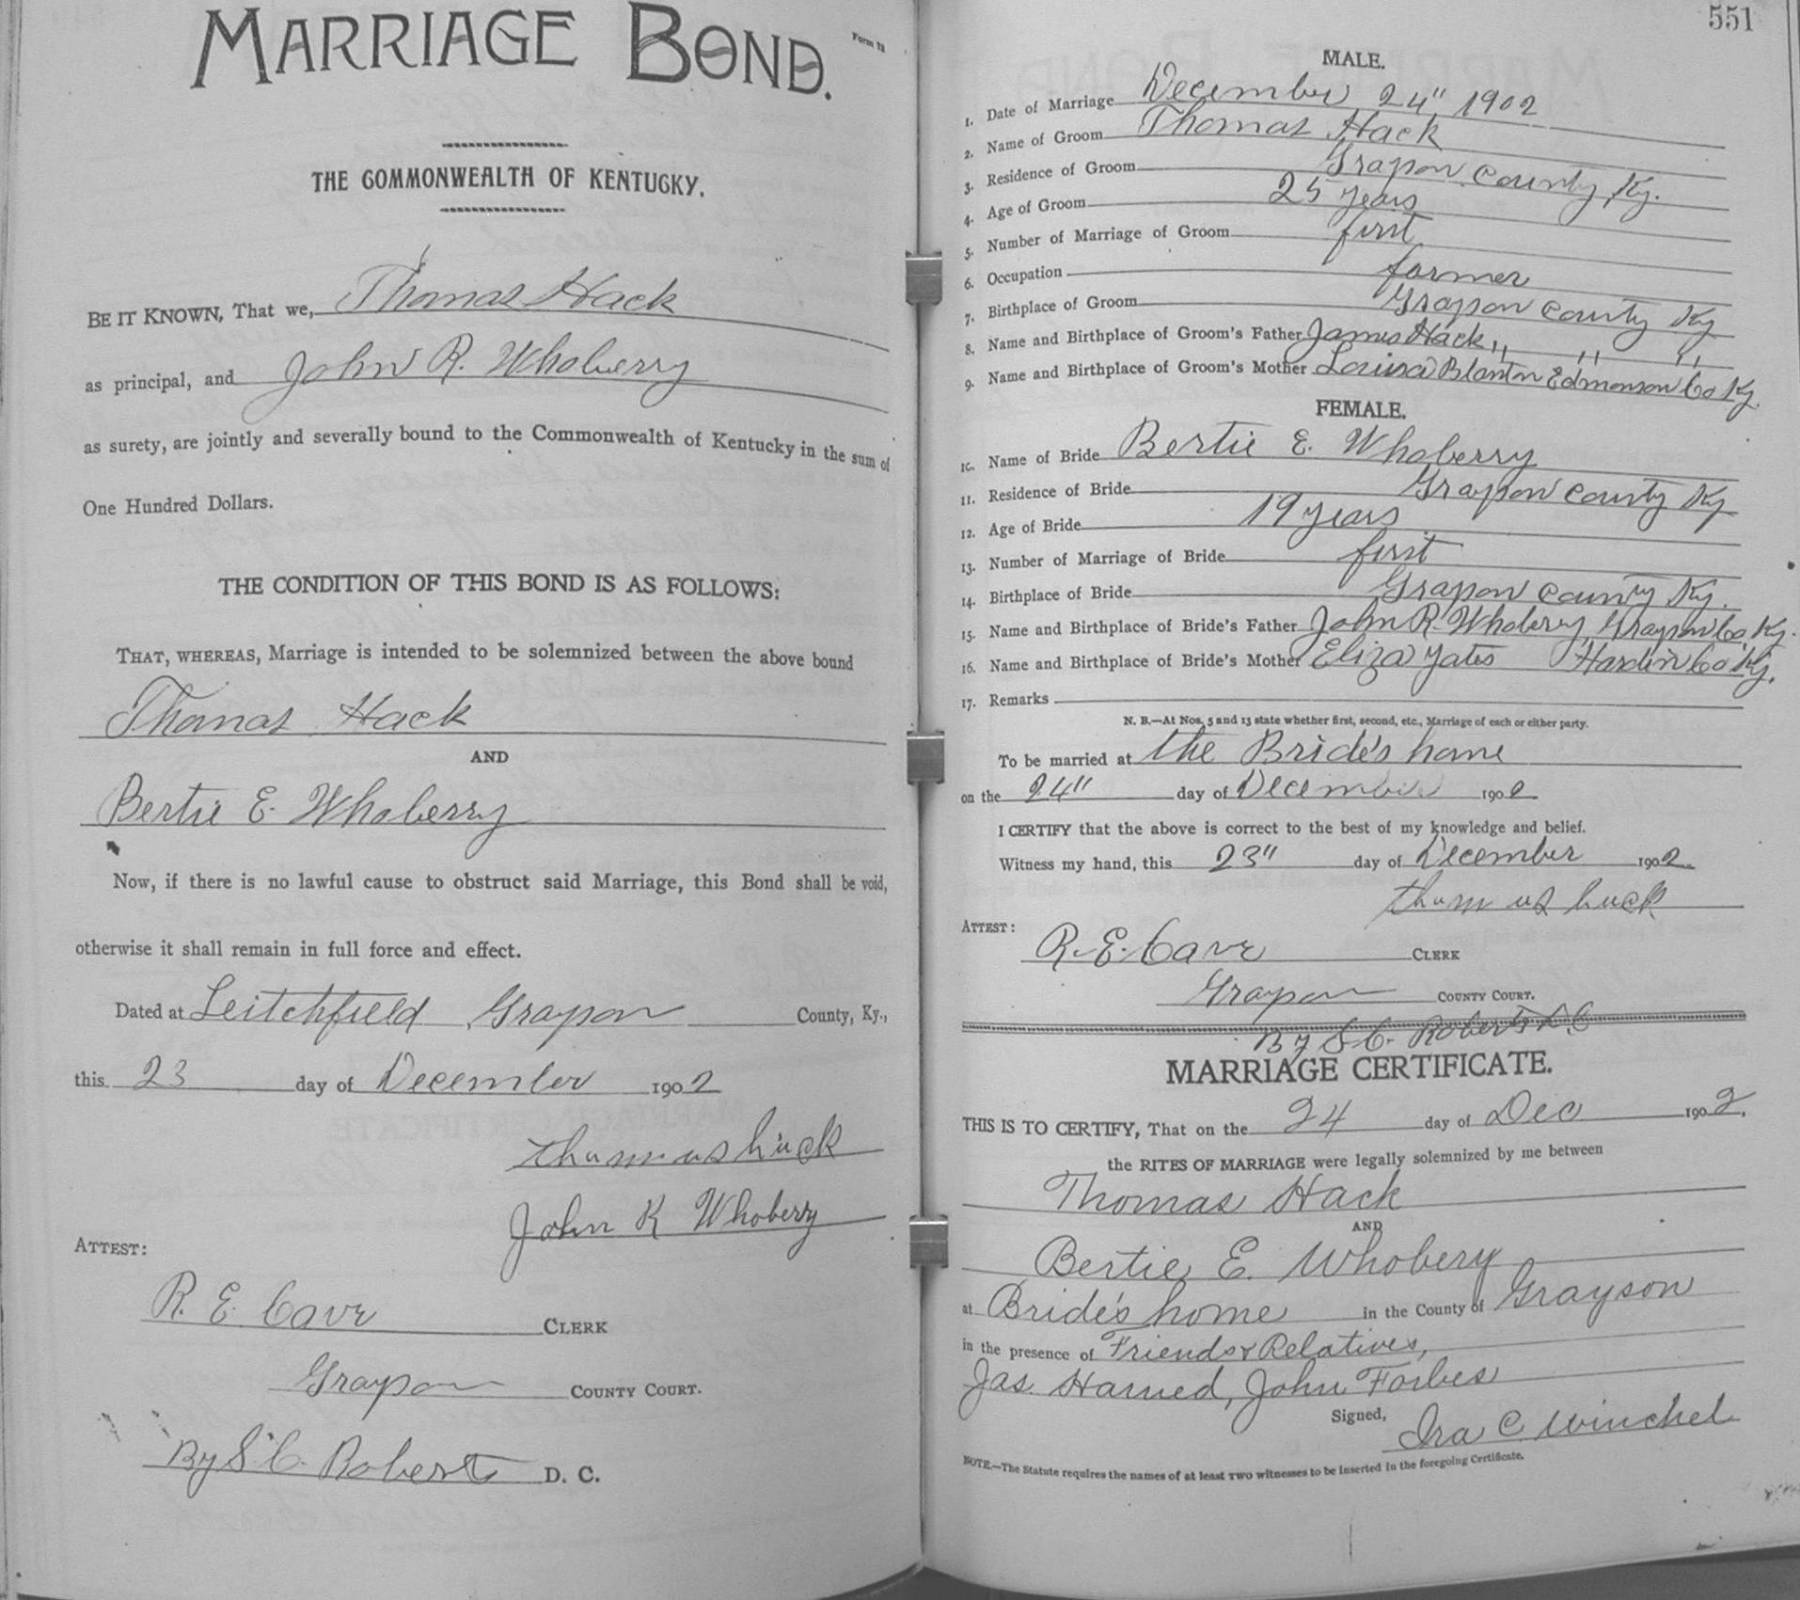 MARRIAGE BOND.
Form 12
THE COMMONWEALTH OF KENTUCKY.
BE IT KNOWN, That we, Thomas Hack
as principal, and John R. Whoberry
as surety, are jointly and severally bound to the Commonwealth of Kentucky in the sum of
One Hundred Dollars.
THE CONDITION OF THIS BOND IS AS FOLLOWS:
THAT, WHEREAS, Marriage is intended to be solemnized between the above bound
Thomas Hack
AND
Bertie E. Whoberry
Now, if there is no lawful cause to obstruct said Marriage, this Bond shall be void,
otherwise it shall remain in full force and effect.
Dated at Leitchfield Grayson County, Ky.,
this 23 day of December 1902
thumus huck
John R Whoberry
ATTEST:
R. E. Cave CLERK
Grayson COUNTY COURT.
By S. C. Roberts D. C.
551
MALE.
1. Date of Marriage December 24", 1902
2. Name of Groom Thomas Hack
3. Residence of Groom Grayson County, Ky.
4. Age of Groom 25 years
5. Number of Marriage of Groom first
6. Occupation farmer
7. Birthplace of Groom Grayson County Ky
8. Name and Birthplace of Groom's Father James Hack " " "
9. Name and Birthplace of Groom's Mother Louisa Blanton Edmonson Co Ky.
FEMALE.
10. Name of Bride Bertie E. Whoberry
11. Residence of Bride Grayson County Ky
12. Age of Bride 19 years
13. Number of Marriage of Bride first
14. Birthplace of Bride Grayson County Ky.
15. Name and Birthplace of Bride's Father John R. Whoberry Grayson Co. Ky.
16. Name and Birthplace of Bride's Mother Eliza Yates Hardin Co Ky.
17. Remarks
N. B.—At Nos. 5 and 13 state whether first, second, etc., Marriage of each or either party.
To be married at the Bride's home
on the 24" day of December 1902
I CERTIFY that the above is correct to the best of my knowledge and belief.
Witness my hand, this 23" day of December 1902
thumus huck
ATTEST:
R. E. Cave CLERK
Grayson COUNTY COURT.
By S. C. Roberts D. C
MARRIAGE CERTIFICATE.
THIS IS TO CERTIFY, That on the 24 day of Dec 1902.
the RITES OF MARRIAGE were legally solemnized by me between
Thomas Hack
AND
Bertie E. Whobery
at Bride's home in the County of Grayson
in the presence of Friends & Relatives,
Jas. Harned, John Forbes
Signed, Ira C. Winchel
NOTE.—The Statute requires the names of at least TWO witnesses to be inserted in the foregoing Certificate.